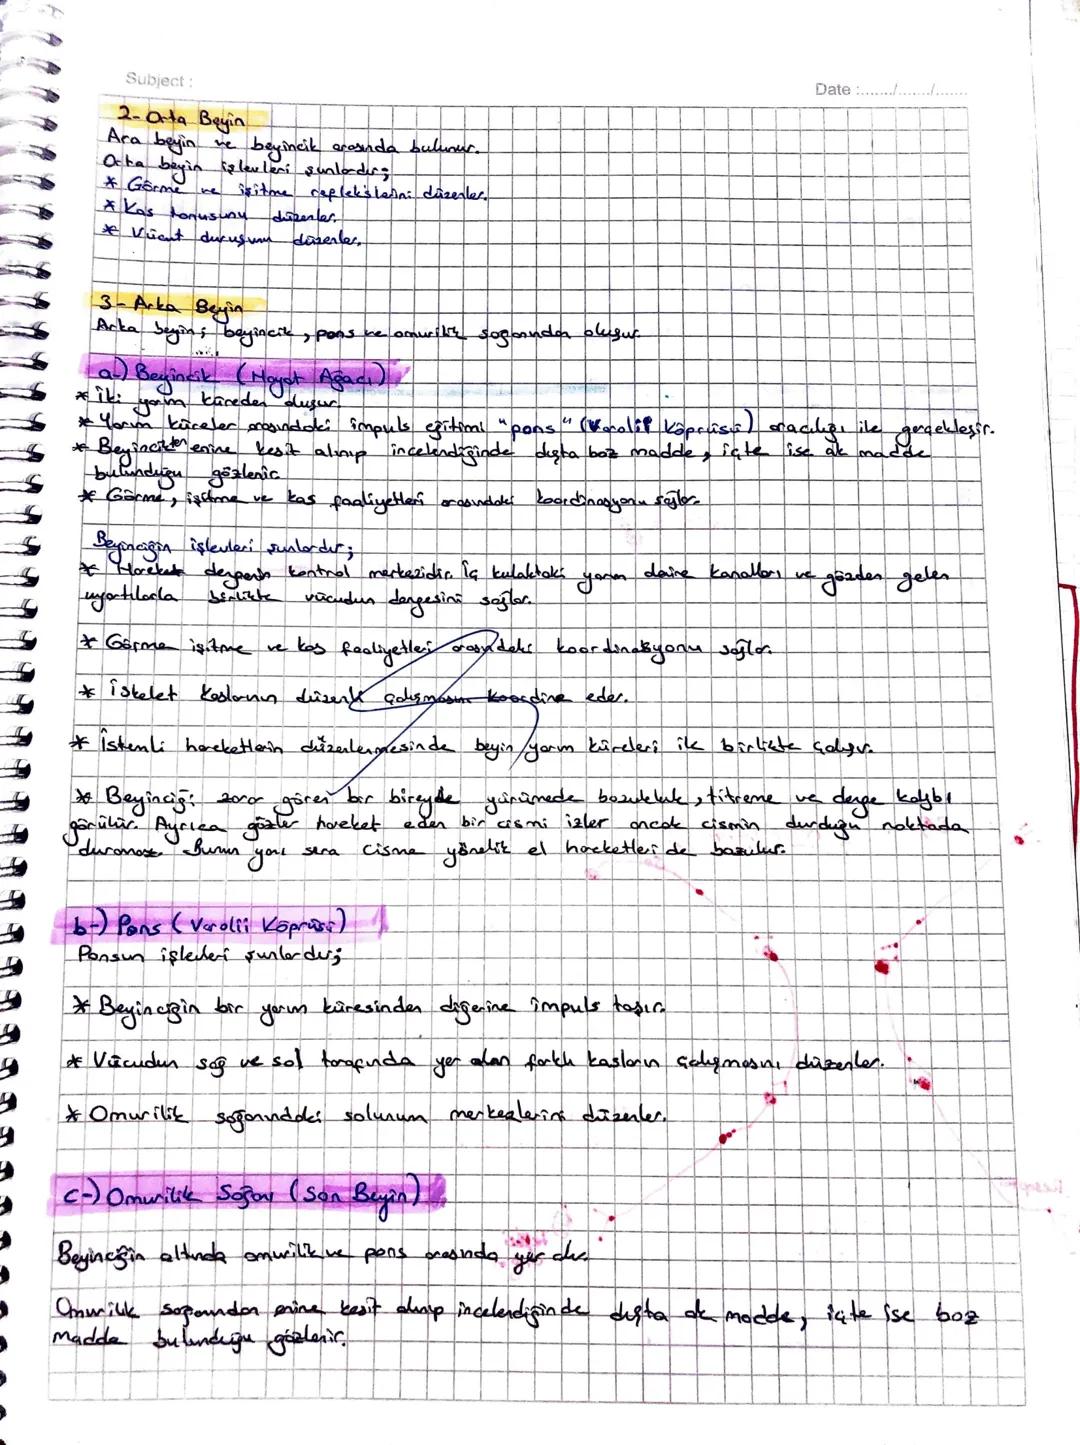 Subject :
Date :......./......./.......
2- Orta Beyin
Ara beyin ve beyincik arasında bulunur.
Orta beyin işlevleri şunlardır;
* Görme ve işitme reflekslerini düzenler.
* Kas tonusunu düzenler.
* Vücut duruşunu düzenler.
3- Arka Beyin
Arka beyin; beyincik, pons ve omurilik soğanından oluşur.
a-) Beyincik (Hayat Ağacı)
* İki yarım küreden oluşur.
* Yarım küreler arasındaki impuls eğitimi "pons" (Varolii Köprüsü) aracılığı ile gerçekleşir.
* Beyincikten enine kesit alınıp incelendiğinde dışta boz madde, içte ise ak madde
bulunduğu gözlenir.
* Görme, işitme ve kas faaliyetleri arasındaki koordinasyonu sağlar.
Beyinciğin işlevleri şunlardır;
* Hareket dengenin kontrol merkezidir. İç kulaktaki yarım daire kanalları ve gözden gelen
uyartılarla birlikte vücudun dengesini sağlar.
* Görme işitme ve kas faaliyetleri arasındaki koordinasyonu sağlar.
* İskelet kaslarının düzenli çalışmasını koordine eder.
* İstemli hareketlerin düzenlenmesinde beyin yarım küreleri ile birlikte çalışır.
* Beyinciği zarar gören bir bireyde yürümede bozukluk, titreme ve denge kaybı
görülür. Ayrıca gözler hareket eden bir cismi izler ancak cismin durduğu noktada
duramaz. Bunun yanı sıra cisme yönelik el hareketleri de bozulur.
b-) Pons (Varolii Köprüsü)
Ponsun işlevleri şunlardır;
* Beyinciğin bir yarım küresinden diğerine impuls taşır.
* Vücudun sağ ve sol tarafında yer alan farklı kasların çalışmasını düzenler.
* Omurilik soğanındaki solunum merkezlerini düzenler.
c-) Omurilik Soğanı (Son Beyin)
Beyinciğin altında omurilik ve pons arasında yer alır.
Omurilik soğanından enine kesit alınıp incelendiğinde dışta ak madde, içte ise boz
madde bulunduğu gözlenir.